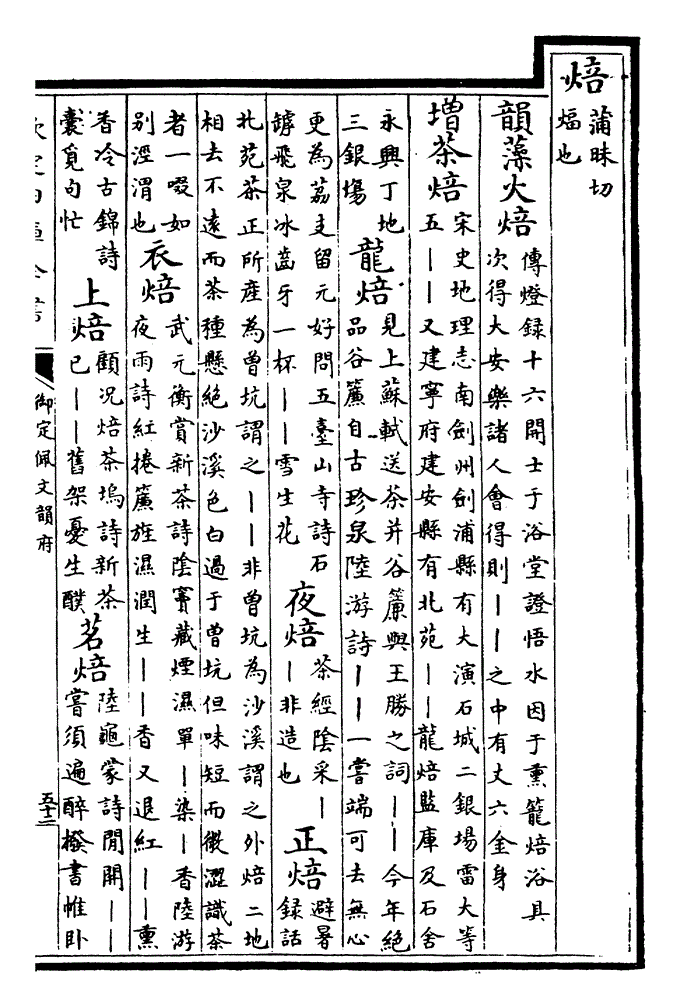 焙
蒲昧切
煏也
韻藻火焙
傳燈録十六開士于浴堂證悟水因于熏籠焙浴具
次得大安樂諸人會得則丨丨之中有丈六金身
增茶焙
宋史地理志南劍州劍浦縣有大演石城二銀場雷大等
五丨丨又建寧府建安縣有北苑丨丨龍焙監庫及石舍
永興丁地
三銀塲
龍焙
見上蘇軾送茶并谷簾與王勝之詞丨丨今年絶
品谷簾自古珍泉陸游詩丨丨一嘗端可去無心
更為荔支留元好問五臺山寺詩石
罅飛泉冰齒牙一杯丨丨雪生花
夜焙
茶經陰采丨
丨非造也
正焙
避暑
録話
北苑茶正所産為曾坑謂之丨丨非曾坑為沙溪謂之外焙二地
相去不遠而茶種懸絶沙溪色白過于曾坑但味短而微澀識茶
者一啜如
别涇渭也
衣焙
武元衡賞新茶詩陰竇藏煙濕單丨染丨香陸游
夜雨詩紅捲簾旌濕潤生丨丨香又退紅丨丨熏
香冷古錦詩
囊覓句忙
上焙
顧况焙茶塢詩新茶
已丨丨舊架憂生醭
茗焙
陸龜蒙詩閒開丨丨
嘗須遍醉撥書帷卧
欽定四庫全書
御定佩文韻府
五十二